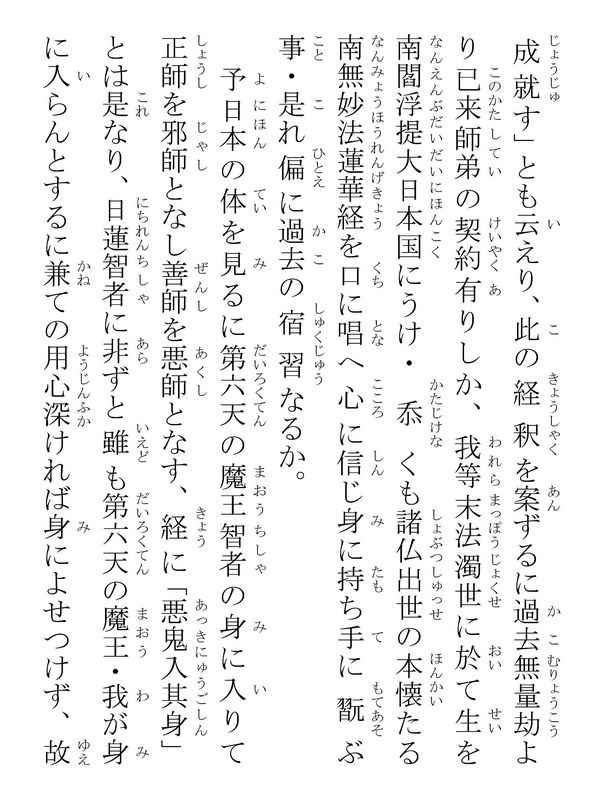 成就す」とも云えり、此の経釈を案ずるに過去無量劫よ
り已来師弟の契約有りしか、我等末法濁世に於て生を
南閻浮提大日本国にうけ・忝くも諸仏出世の本懐たる
南無妙法蓮華経を口に唱へ心に信じ身に持ち手に翫ぶ
事・是れ偏に過去の宿習なるか。
予日本の体を見るに第六天の魔王智者の身に入りて
正師を邪師となし善師を悪師となす、経に「悪鬼入其身」
とは是なり、日蓮智者に非ずと雖も第六天の魔王・我が身
に入らんとするに兼ての用心深ければ身によせつけず、故